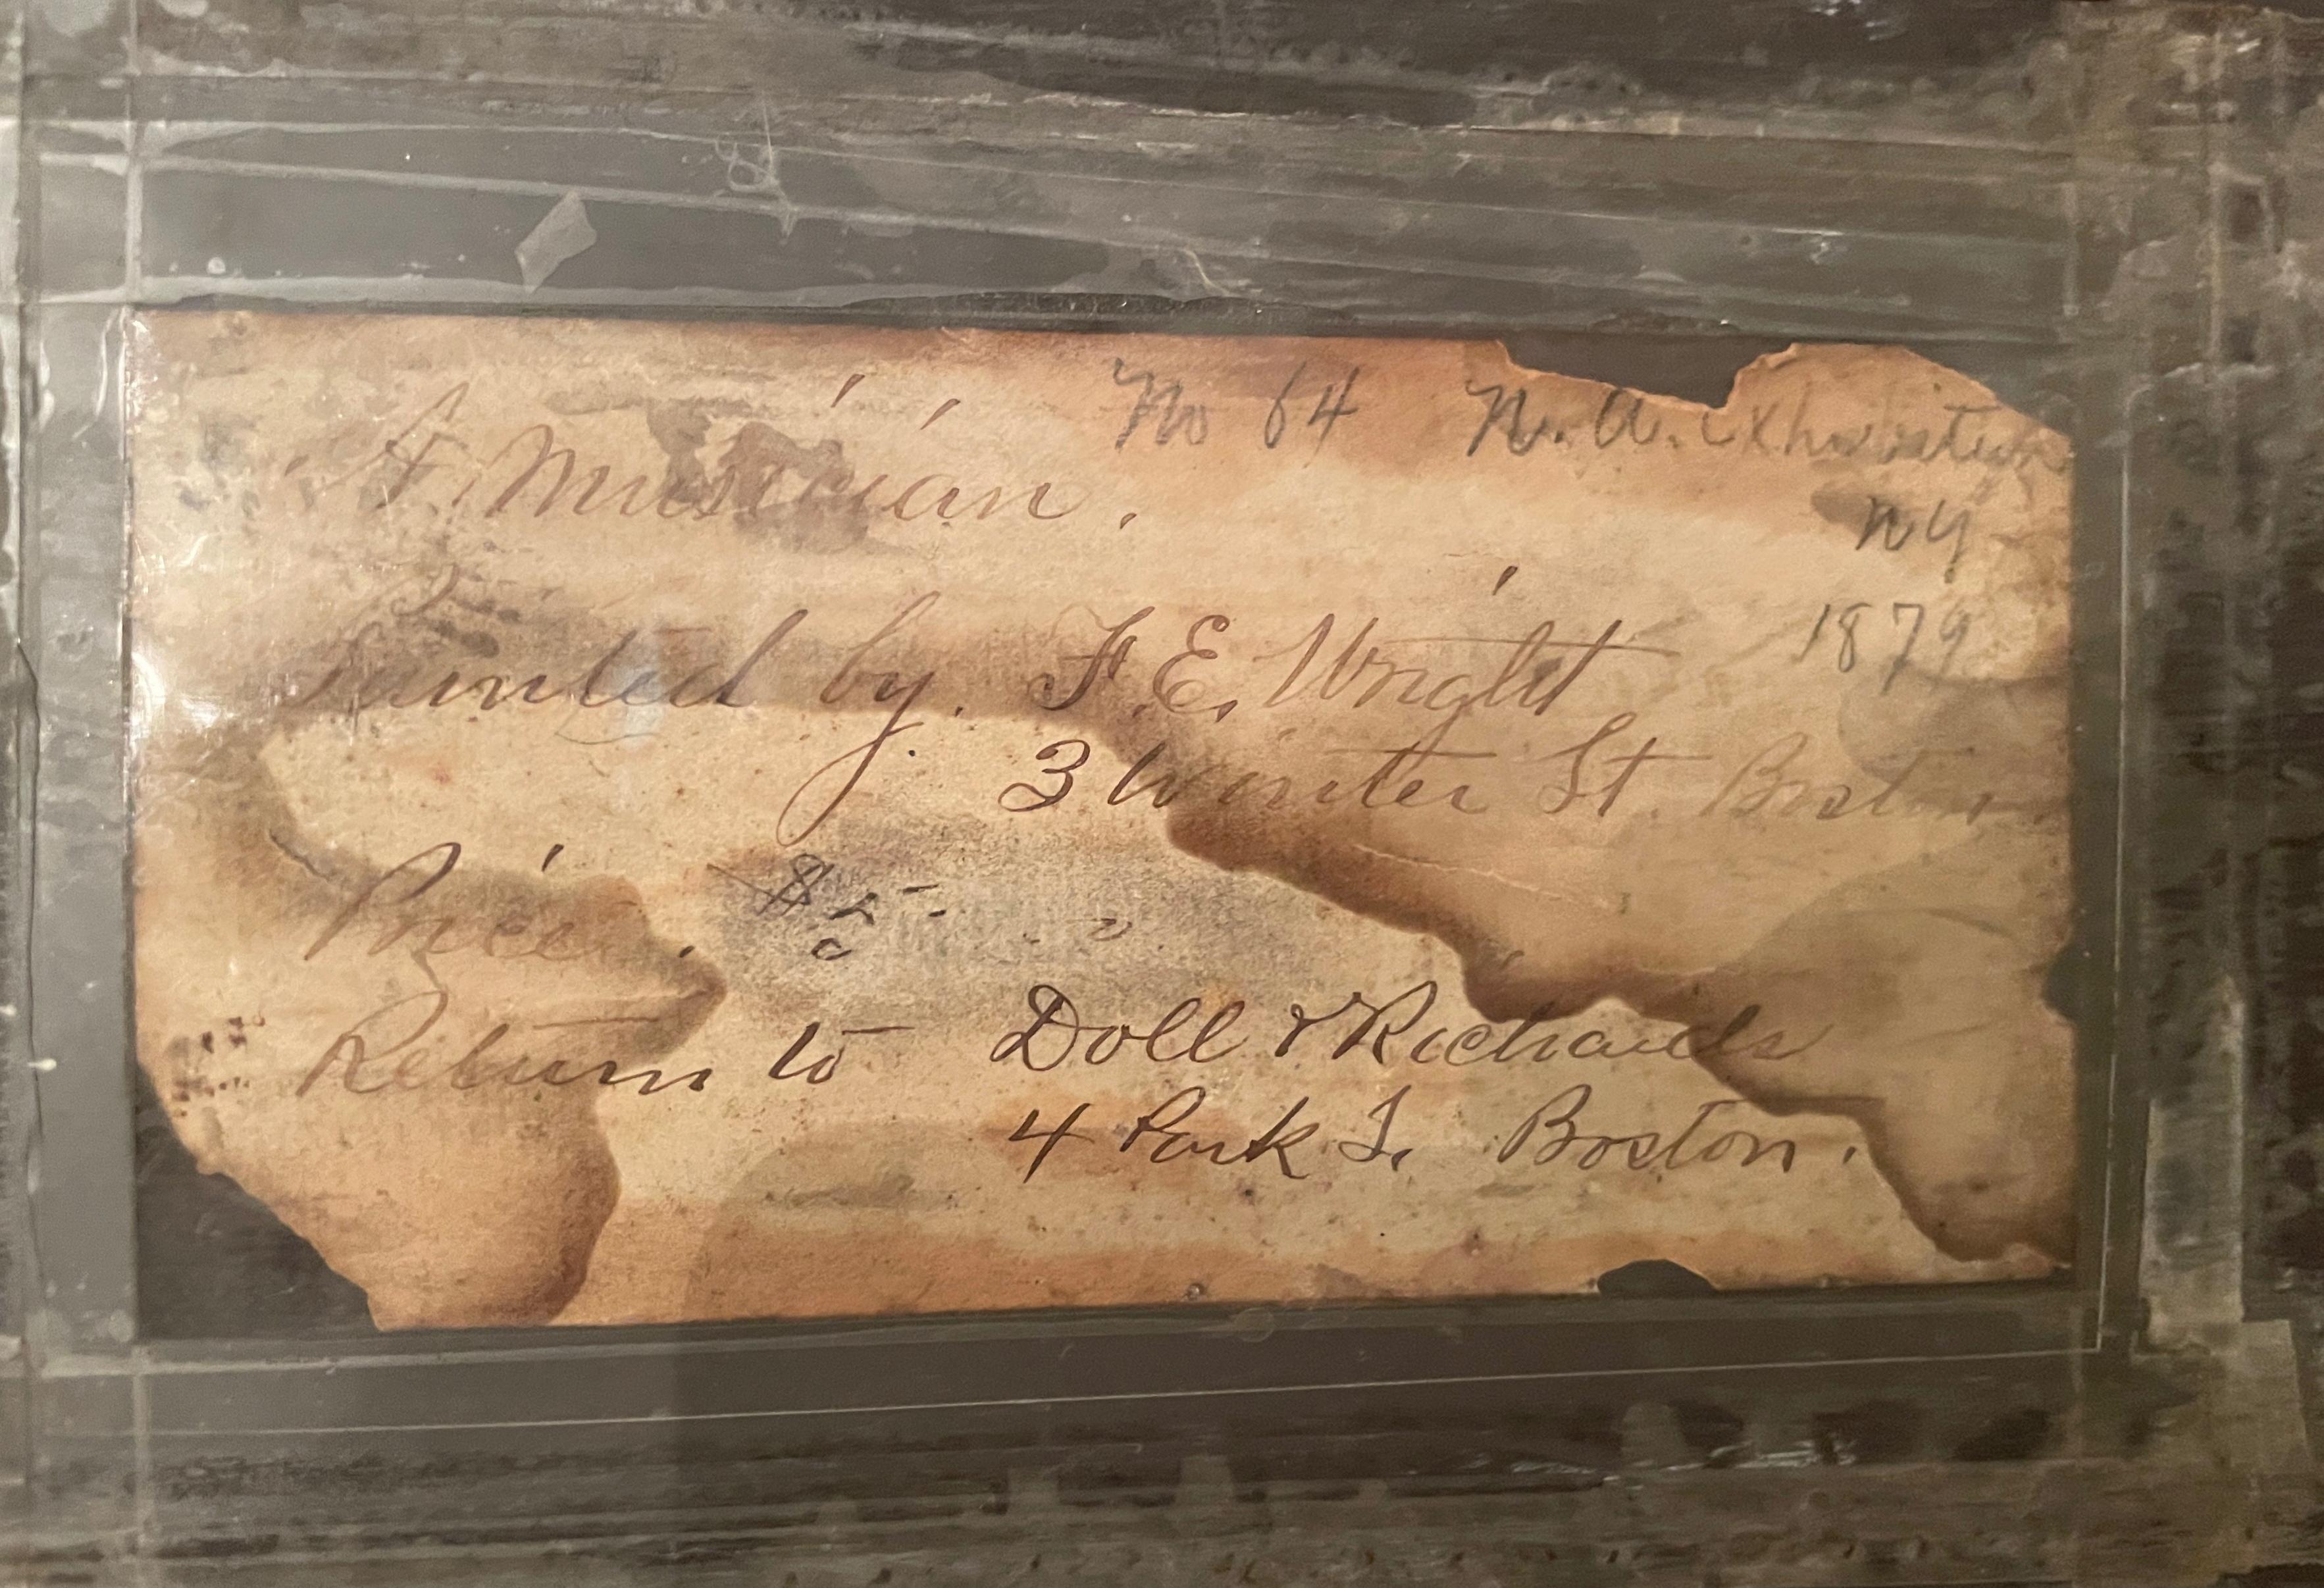 No 64 N. A. exhibition
A Musician.
NY
1879
Painted by. F. E. Wright
3 Winter St. Boston
Price. $5
Return to Doll & Richards
4 Park S. Boston.